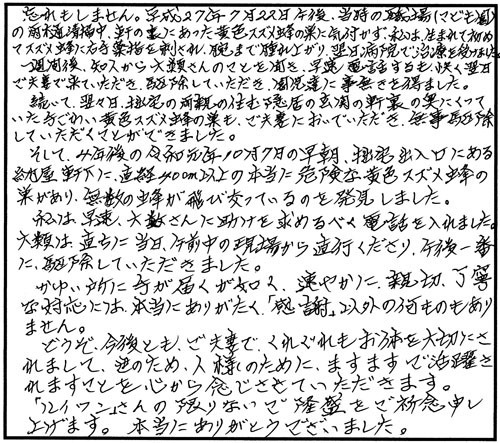 忘れもしません。平成27年7月22日午後、当時の職場(こども園)
の雨樋清掃中、軒の裏にあった黄色スズメ蜂の巣に気付かず、私は、生まれて初めて
スズメ蜂に右手薬指を刺され、腕まで腫れ上がり、翌日病院で治療を受けました。
一週間後、知人から六類さんのことを聞き、早速電話するも快く翌日
ご夫妻で来ていただき、駆除していただき、園児達に事無きを得ました。
続いて、翌々日、拙宅の両親の住む隠居の玄関の軒裏の巣につくって
いたおそれい黄色スズメ蜂の巣も、ご夫妻においでいただき、無事駆除
していただくことができました。
そして、4年後の令和元年10月7日の早朝、拙宅出入口にある
納屋軒下に、直径40cm以上の本当に危険な黄色スズメ蜂の
巣があり、無数の蜂が飛び交っているのを発見しました。
私は、早速、六類さんに助けを求めるべく電話を入れました。
六類は、直ちに当日、午前中の現場から直行くださり、午後一番
に、駆除していただきました。
かゆい所に手が届くが如く、速やかに、親切、丁寧
な対応には、本当にありがたく、「感謝」以外の何ものもあり
ません。
どうぞ、今後とも、ご夫妻で、くれぐれもお体を大切にさ
れまして、世のため、人様のために、ますますご活躍さ
れますことを心から念じさせていただきます。
さんの限りないご隆盛をご祈念申し
上げます。本当にありがとうございました。